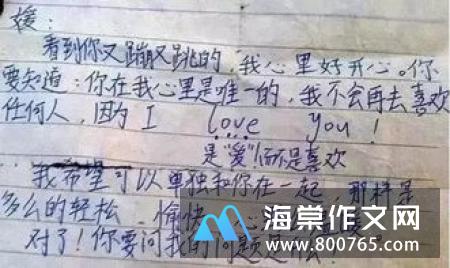 媛：
看到你又蹦又跳的，我心里好开心。你
要知道：你在我心里是唯一的，我不会再去喜欢
任何人，因为 I love you！
是“爱”而不是喜欢
我希望可以单独和你在一起，那样是
多么的轻松、愉快
对了！你要问我的问题是什么？
海棠作文网
www.800765.com